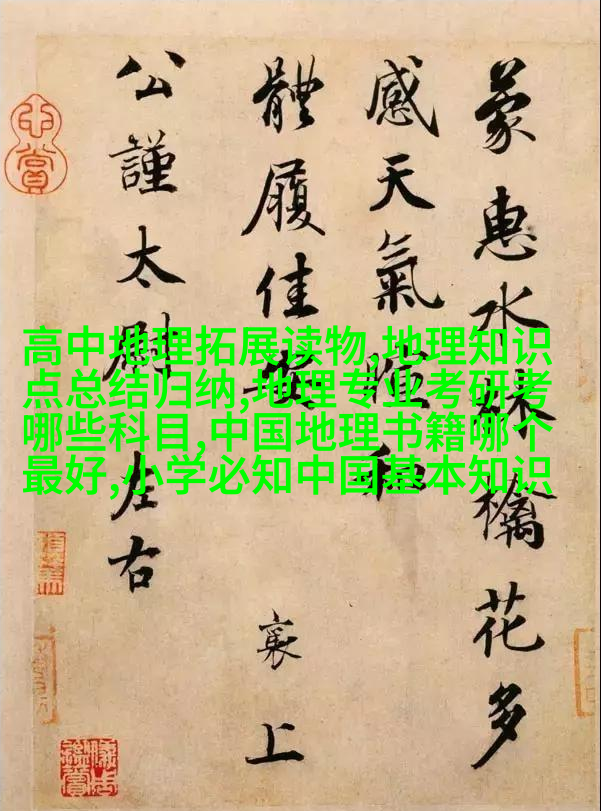 高中地理拓展读物,地理知识
点总结归纳,地理专业考研考
哪些科目,中国地理书籍哪个
最好,小学必知中国基本知识
蒙惠水林檎花多
感天氣暄和
體履佳安 襄上
公謹太尉左右